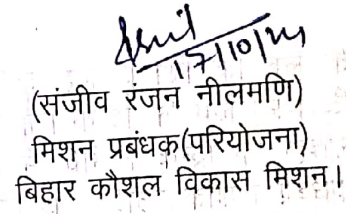 17/10/24
(संजीव रंजन नीलमणि)
मिशन प्रबंधक(परियोजना)
बिहार कौशल विकास मिशन।